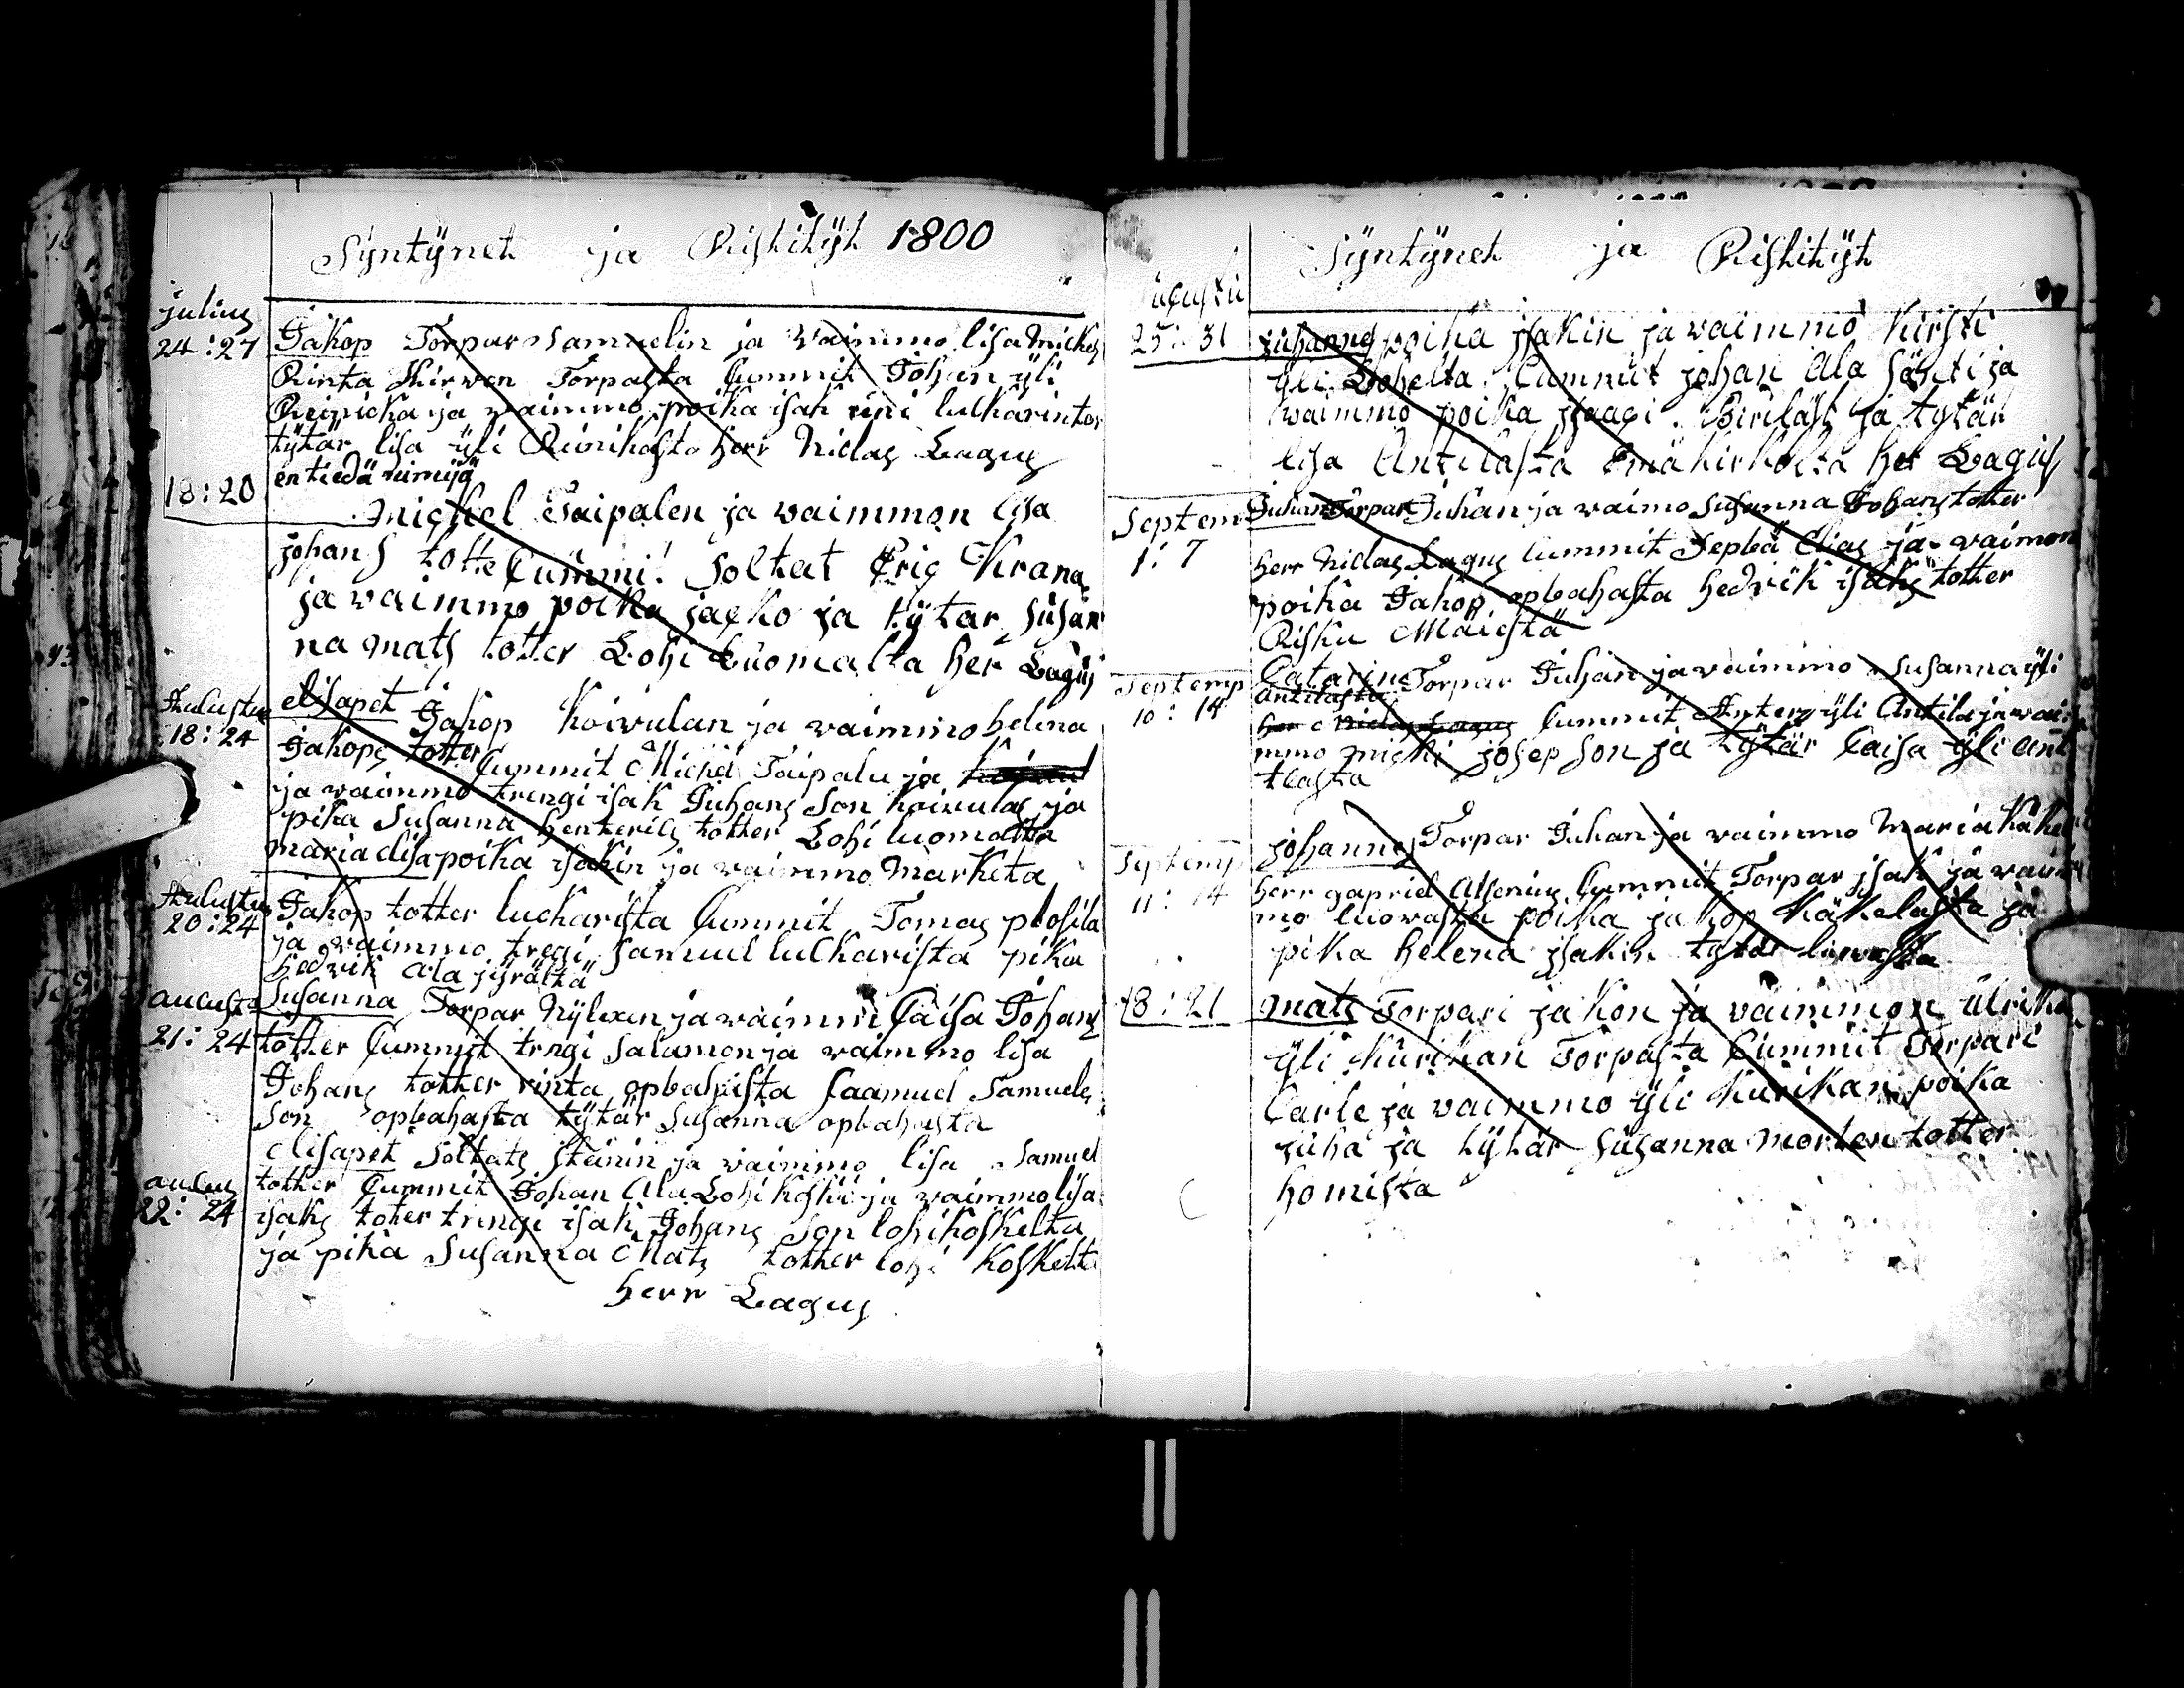 Syntynet ja Ristityt 1800
julius
24:27
Jakop Torpar Samuelin ja vaimmo lisa Mickels
Rinta Hirven Torpasta Cummit Johan yli
Reinicka ja vaimmo poika isak yni lulkarin tor
tytär lisa yli Rinikasta herr Niclas Lagus
18:20
en tiedä nimijä
Michel Taipalen ja vaimmon lisa
johans totte Cummi: Soltat Eric Krana
ja vaimmo poika jacko ja tytar Susan
na mats totter Lohi Luomalta her Lagus
18:24
elisapet Jakop Koivulan ja vaimmo helena
Jakops totter Cummit Michel Taipalu ja
ja vaimmo trengi isak Juhans Son koivulas ja
pika Susanna henterils totter Lohi luomalta
maria lisa poika isakin ja vaimmo Marketa
20:24
Jakop totter luckarista Cummit Tomas plosila
ja vaimmo tregi Samuel lulkarista pika
hedvik Ala jyrältä
augusta
21:24
Susanna Torpar Nylixen ja vaimmi Caisa Johans
totter Cummit trngi Salamon ja vaimmo lisa
Johans totter rinta opbahasta Saamuel Samuels
Son opbahasta tytär Susanna opbahasta
augu
22:24
Elisapet Soltats stänin ja vaimmo lisa Samuel
totter Cummit Johan Ala Lohikoski ja vaimmo lisa
isaks toter trengi isak Johans Son lohikoskelta
ja pika Susanna Mats totter lohi koskelta
herr Lagus
Syntynet ja Ristityt
ugusti
25:31
juhannes poika jsakin ja vaimmo kirsti
yli Lohelta. Cummiit johan Ala Sänti ja
vaimmo poika jsaagi. Piriläst ja tytär
lisa Antilasta Emäkirkolta her Lagus
Septem
1:7
Juhan Torpar Juhan ja vaimo Susanna Johans totter
herr Niclas Lagus Cummit Sepbä Elias ja vaimon
poika Jakop opbahasta hedvik isaks totter
Risku Mäiestä
Septemp
10:14
Catarina Torpar Juhan ja vaimmo Susanna yli
Antilasta
herr Niclas Lagus Cummit Anters yli Antila ja vai
mmo michi josep Son ja tytär Caisa yli Ant
tlasta
Septemp
11:14
johannes Torpar Juhan ja vaimmo Maria käke
herr gapriel Alsenius Cummit Torpar jsak ja vaim
mo luovasta poika jakop käkelasta ja
pika helena jsakin tytär luovasta
18:21
mats Torpari jakon ja vaimmon ulrika
yli kurikan Torpasta Cummit Torpari
Carle ja vaimmo yli kurikan poika
juha ja tytär Susanna morten totter
homista